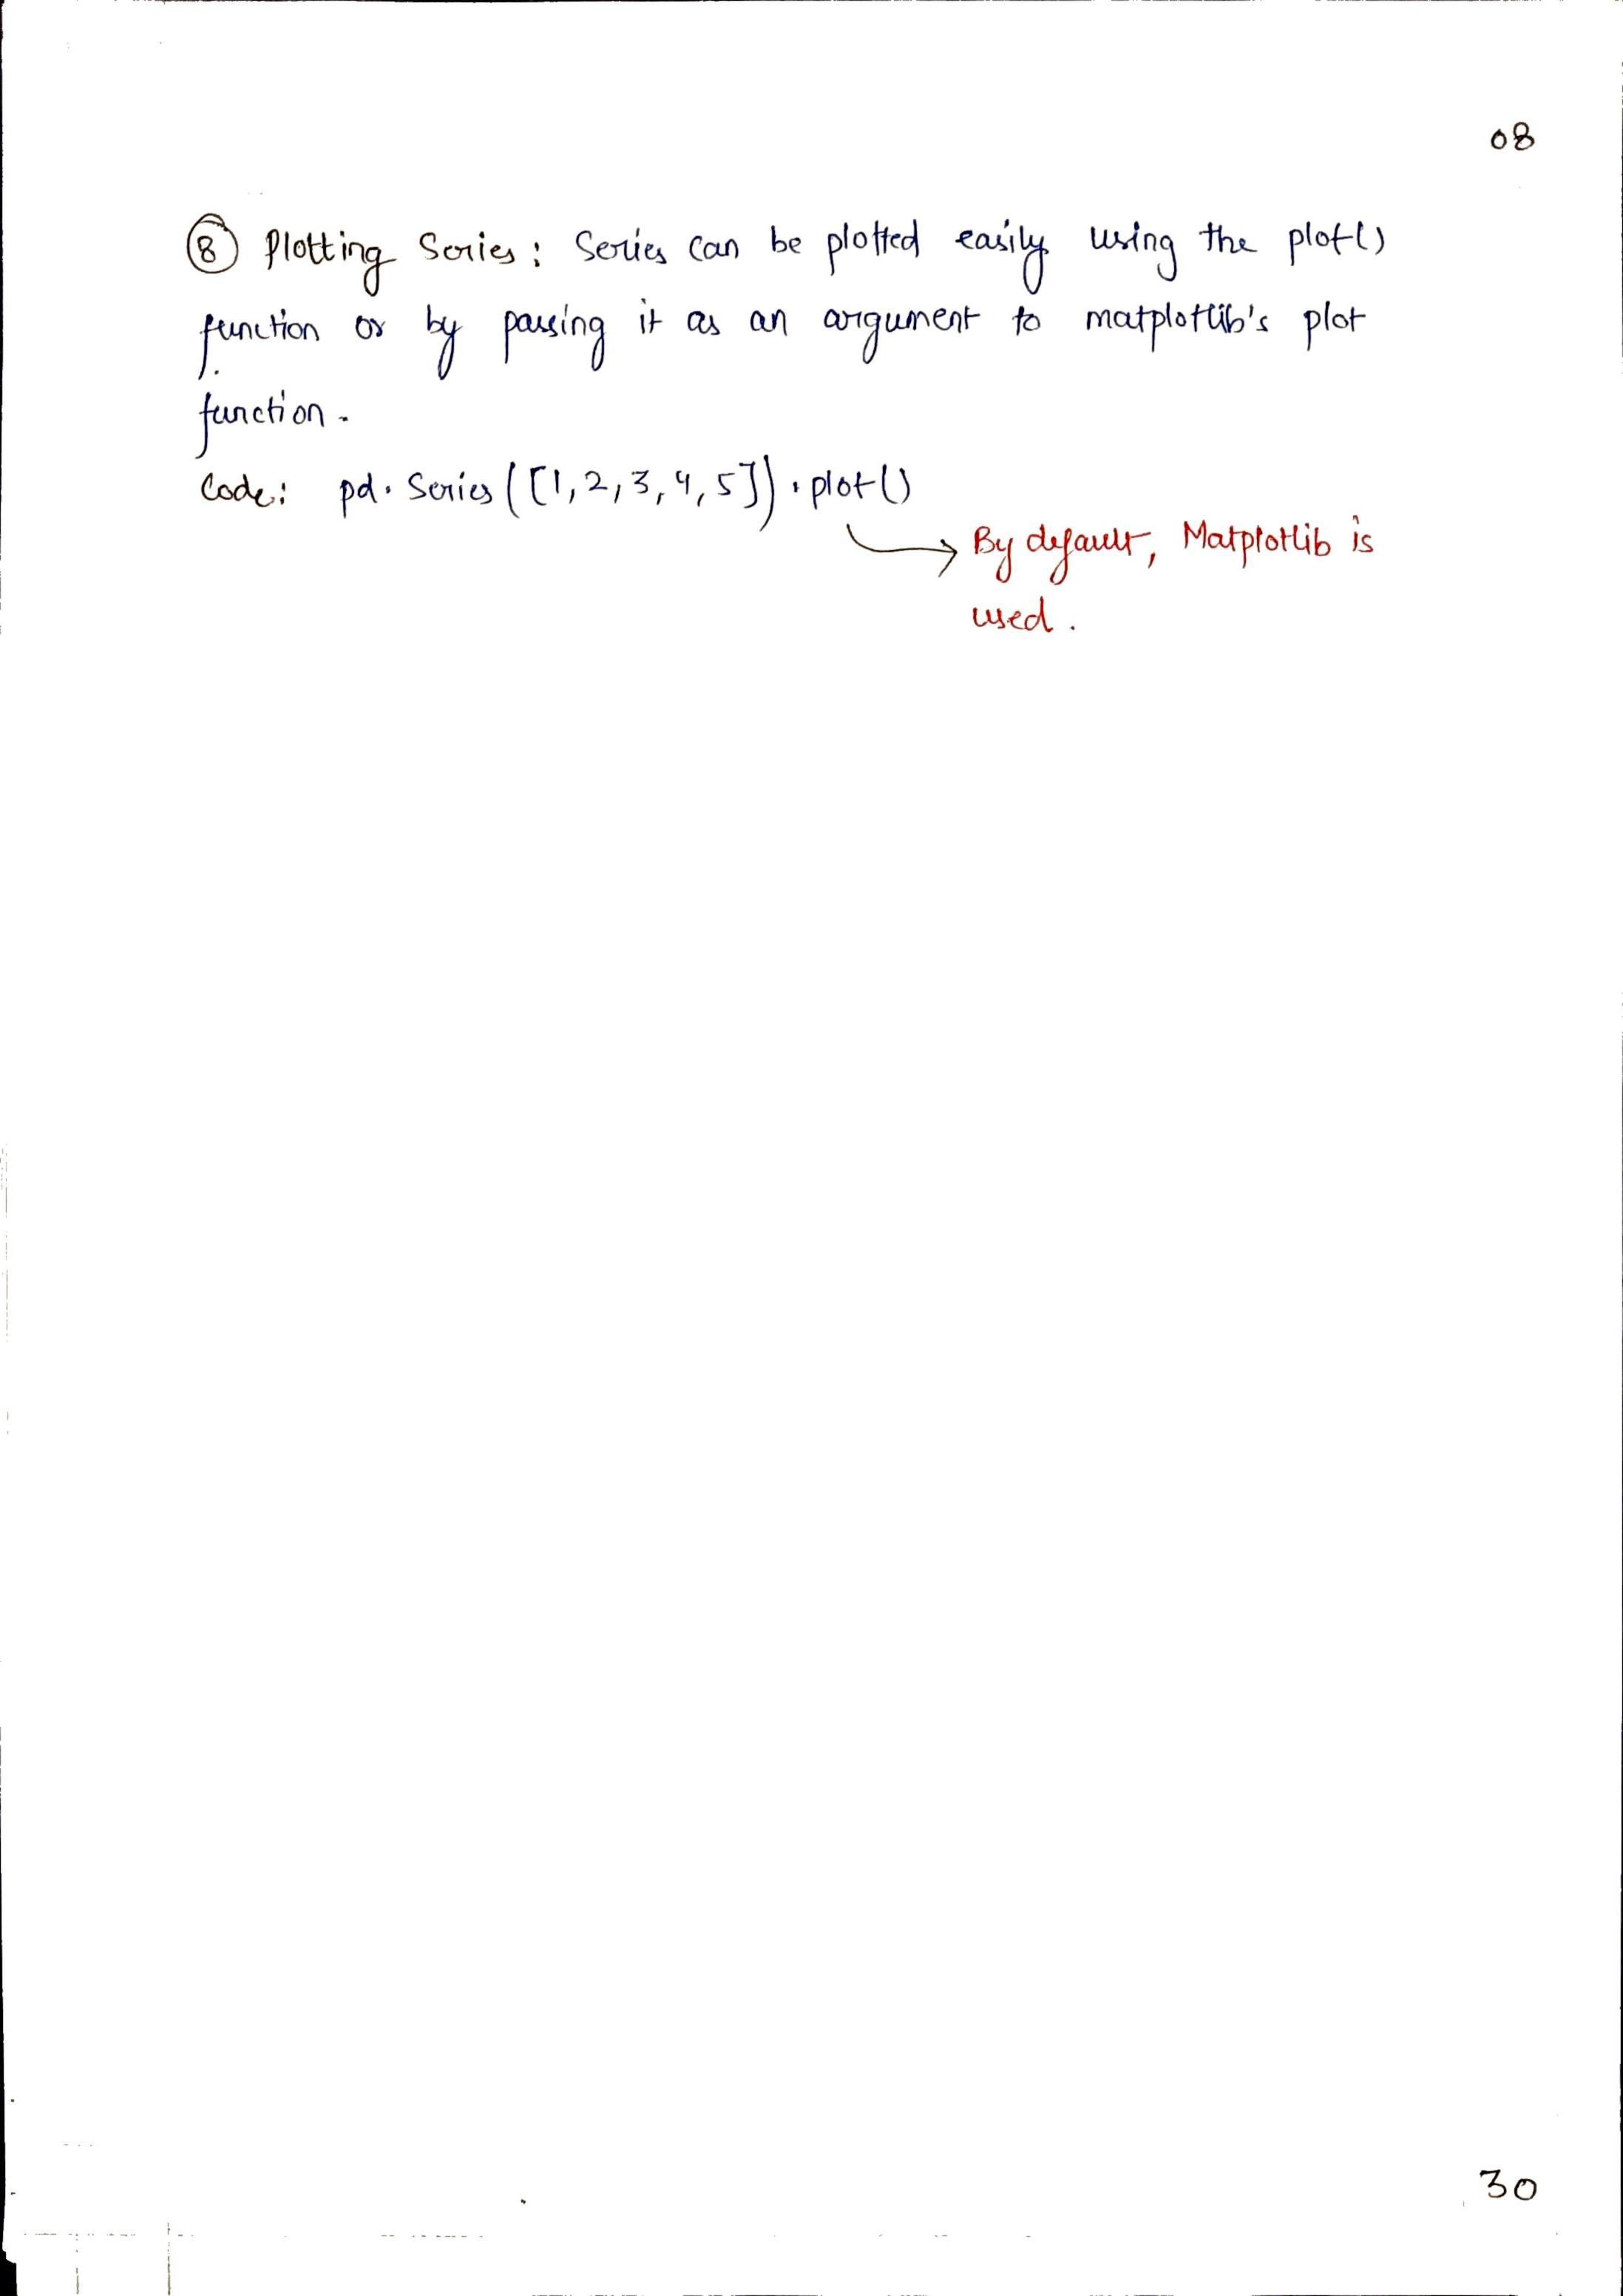 08
⑧ Plotting Series : Series can be plotted easily using the plot()
function or by passing it as an argument to matplotlib's plot
function.
Code: pd. Series ([1,2,3,4,5]).plot()
→ By default, Matplotlib is
used.
30